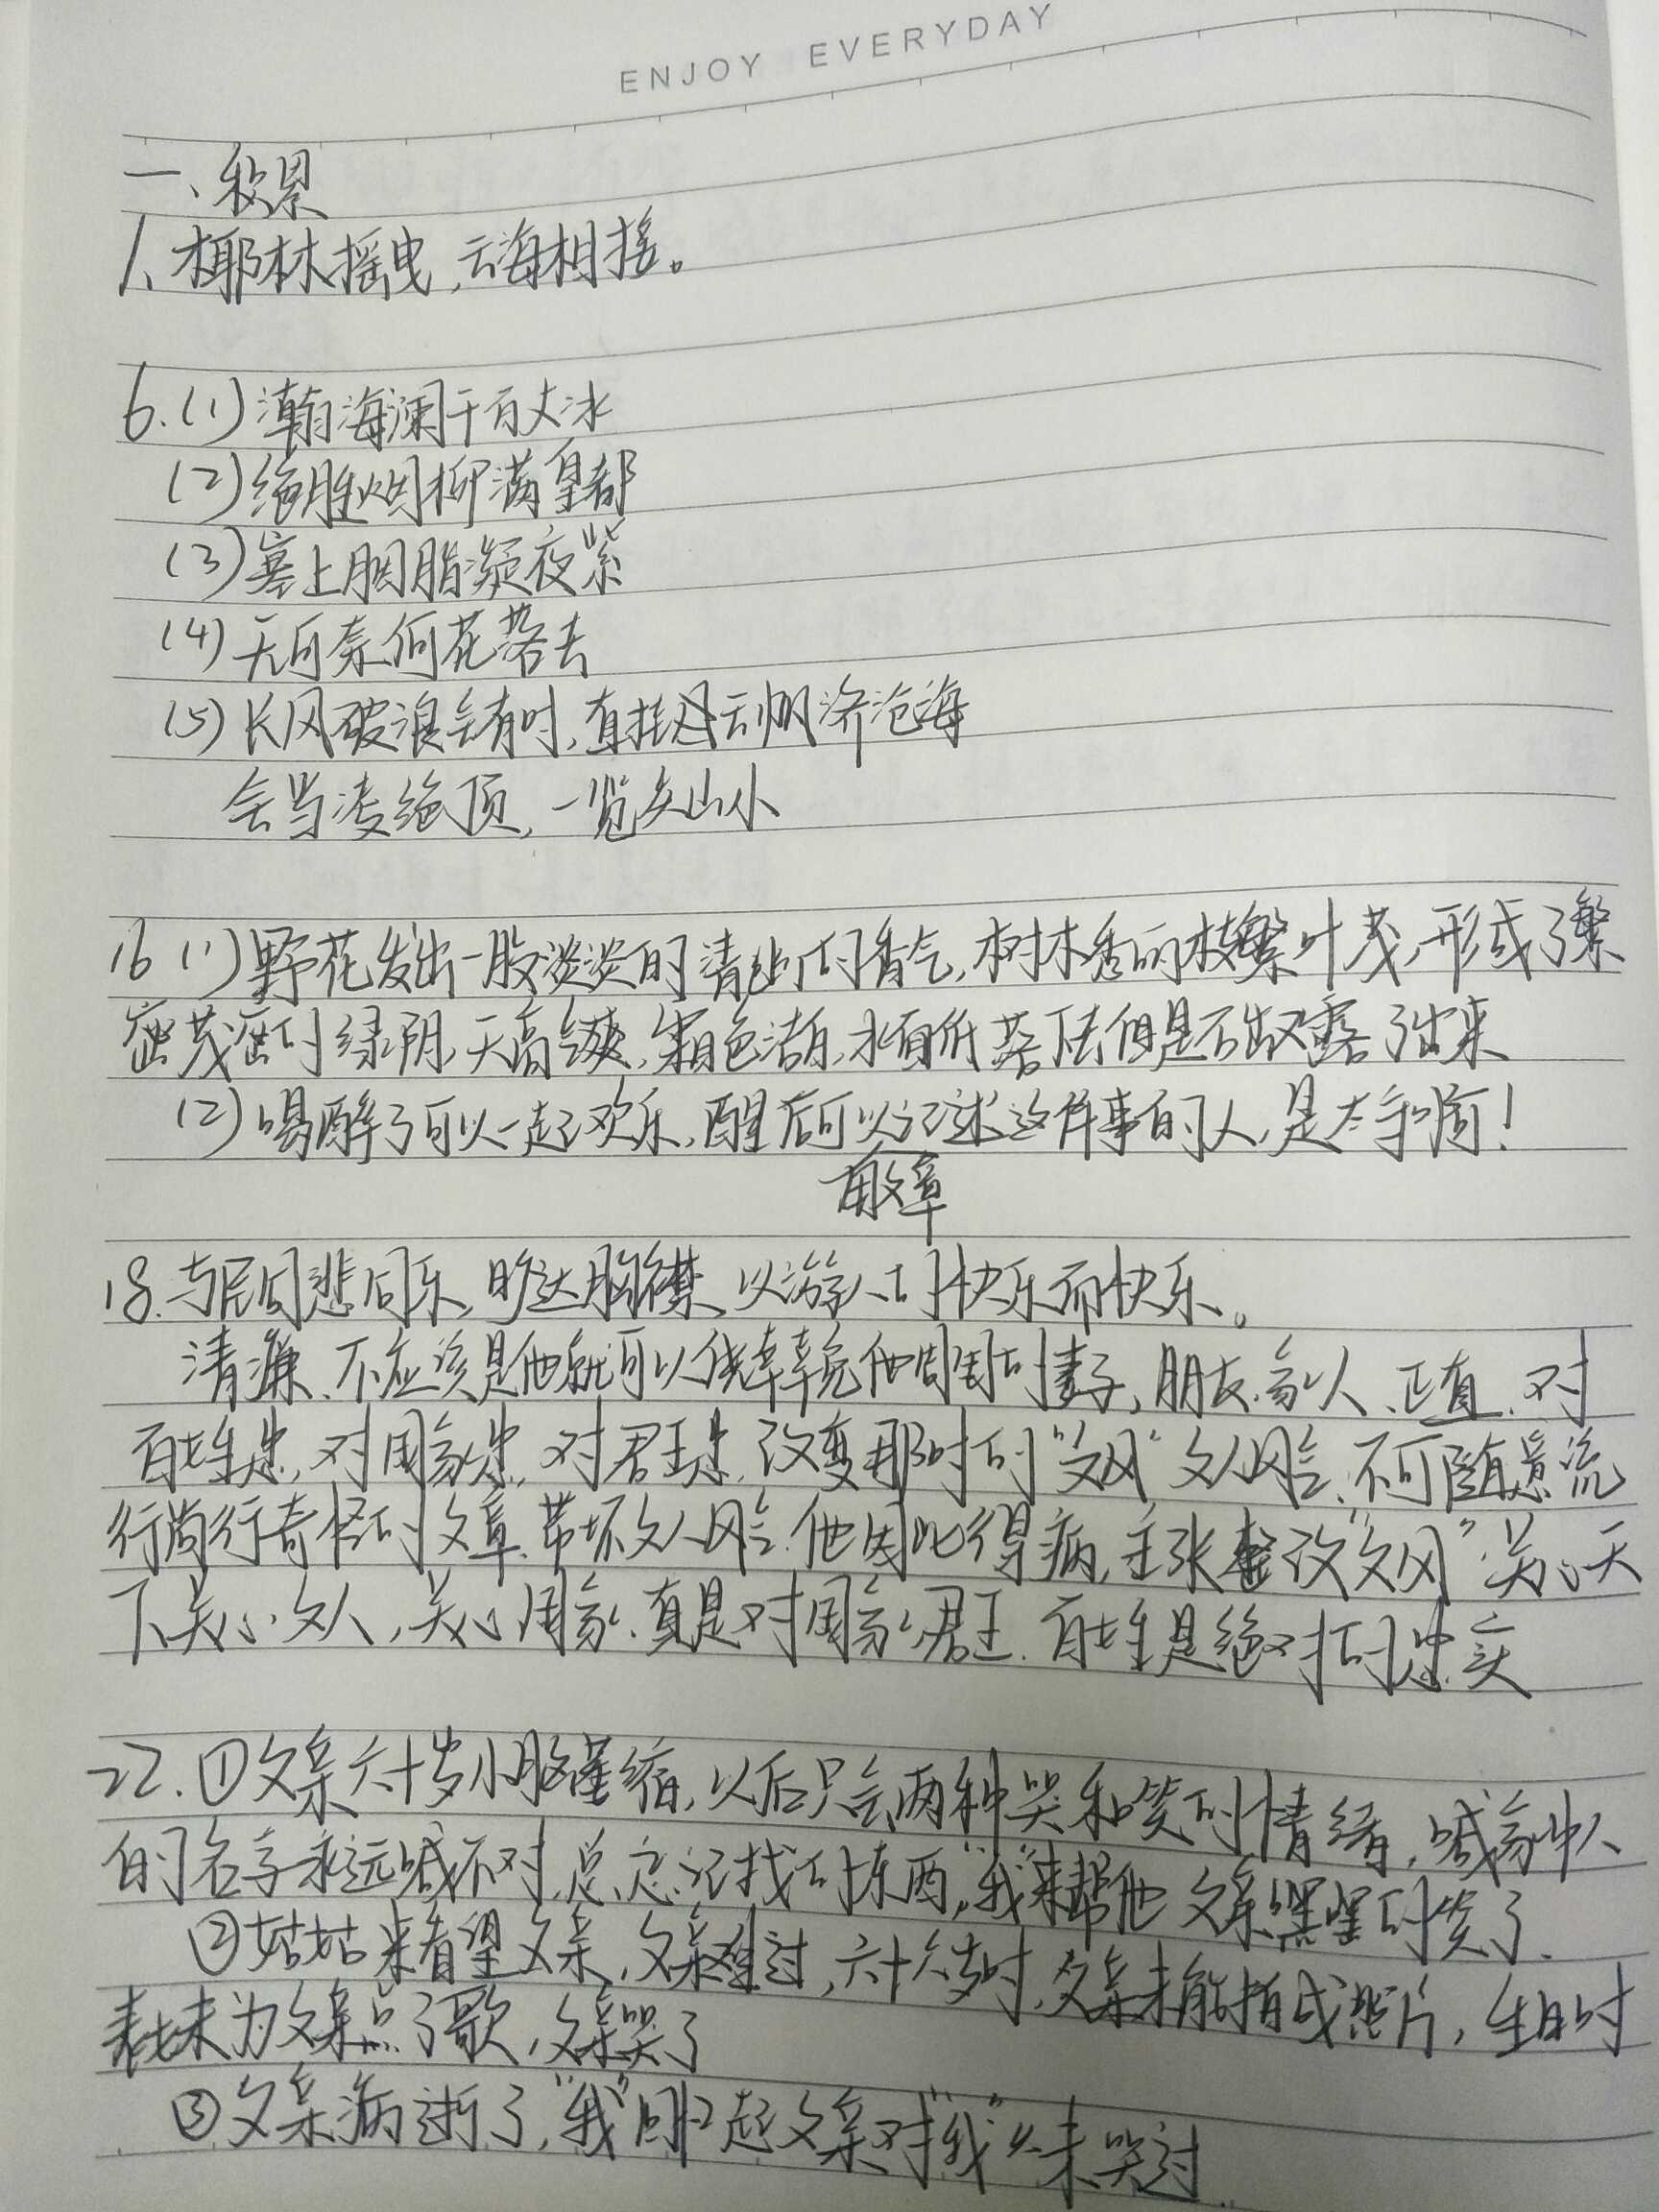 ENJOY EVERYDAY
一、积累
1、椰林摇曳,云海相接。
6.(1)瀚海澜干百丈冰
(2)绝胜烟柳满皇都
(3)塞上胭脂凝夜紫
(4)无可奈何花落去
(5)长风破浪会有时,直挂云帆济沧海
会当凌绝顶,一览众山小
16(1)野花发出一股淡淡的清幽的香气,树木秀的枝繁叶茂,形成了繁
密茂密的绿阴,天高气爽,霜色洁白,水面低落下去但是石出又露了出来
(2)喝醉了可以一起欢乐,醒后可以记述这件事的人,是太守啊!
用文章
18.与民同悲同乐,旷达胸襟,以游人的快乐而快乐。
清濂、不应该是他就可以侥幸免他周围的妻子,朋友、家人、正直、对
百姓忠,对国家忠,对君王忠,改变那时的“文风”文人风气、不可随意流
行尚行奇怪的文章、带坏文人风气.他因此得病,主张整改“文风”关心天
下关心文人,关心国家、真是对国家,君王、百姓是绝对的忠实
22.①父亲六十岁小脑萎缩,以后只会两种哭和笑的情绪,喊家中人
的名字永远喊不对,总忘记找的东西,“我”来帮他 父亲嘿嘿的笑了.
②姑姑来看望父亲,父亲难过,六十六岁时,父亲未能拍成照片,生日时
表妹为父亲点了歌,父亲哭了
③父亲病逝了,“我”回忆起父亲对“我”从未哭过